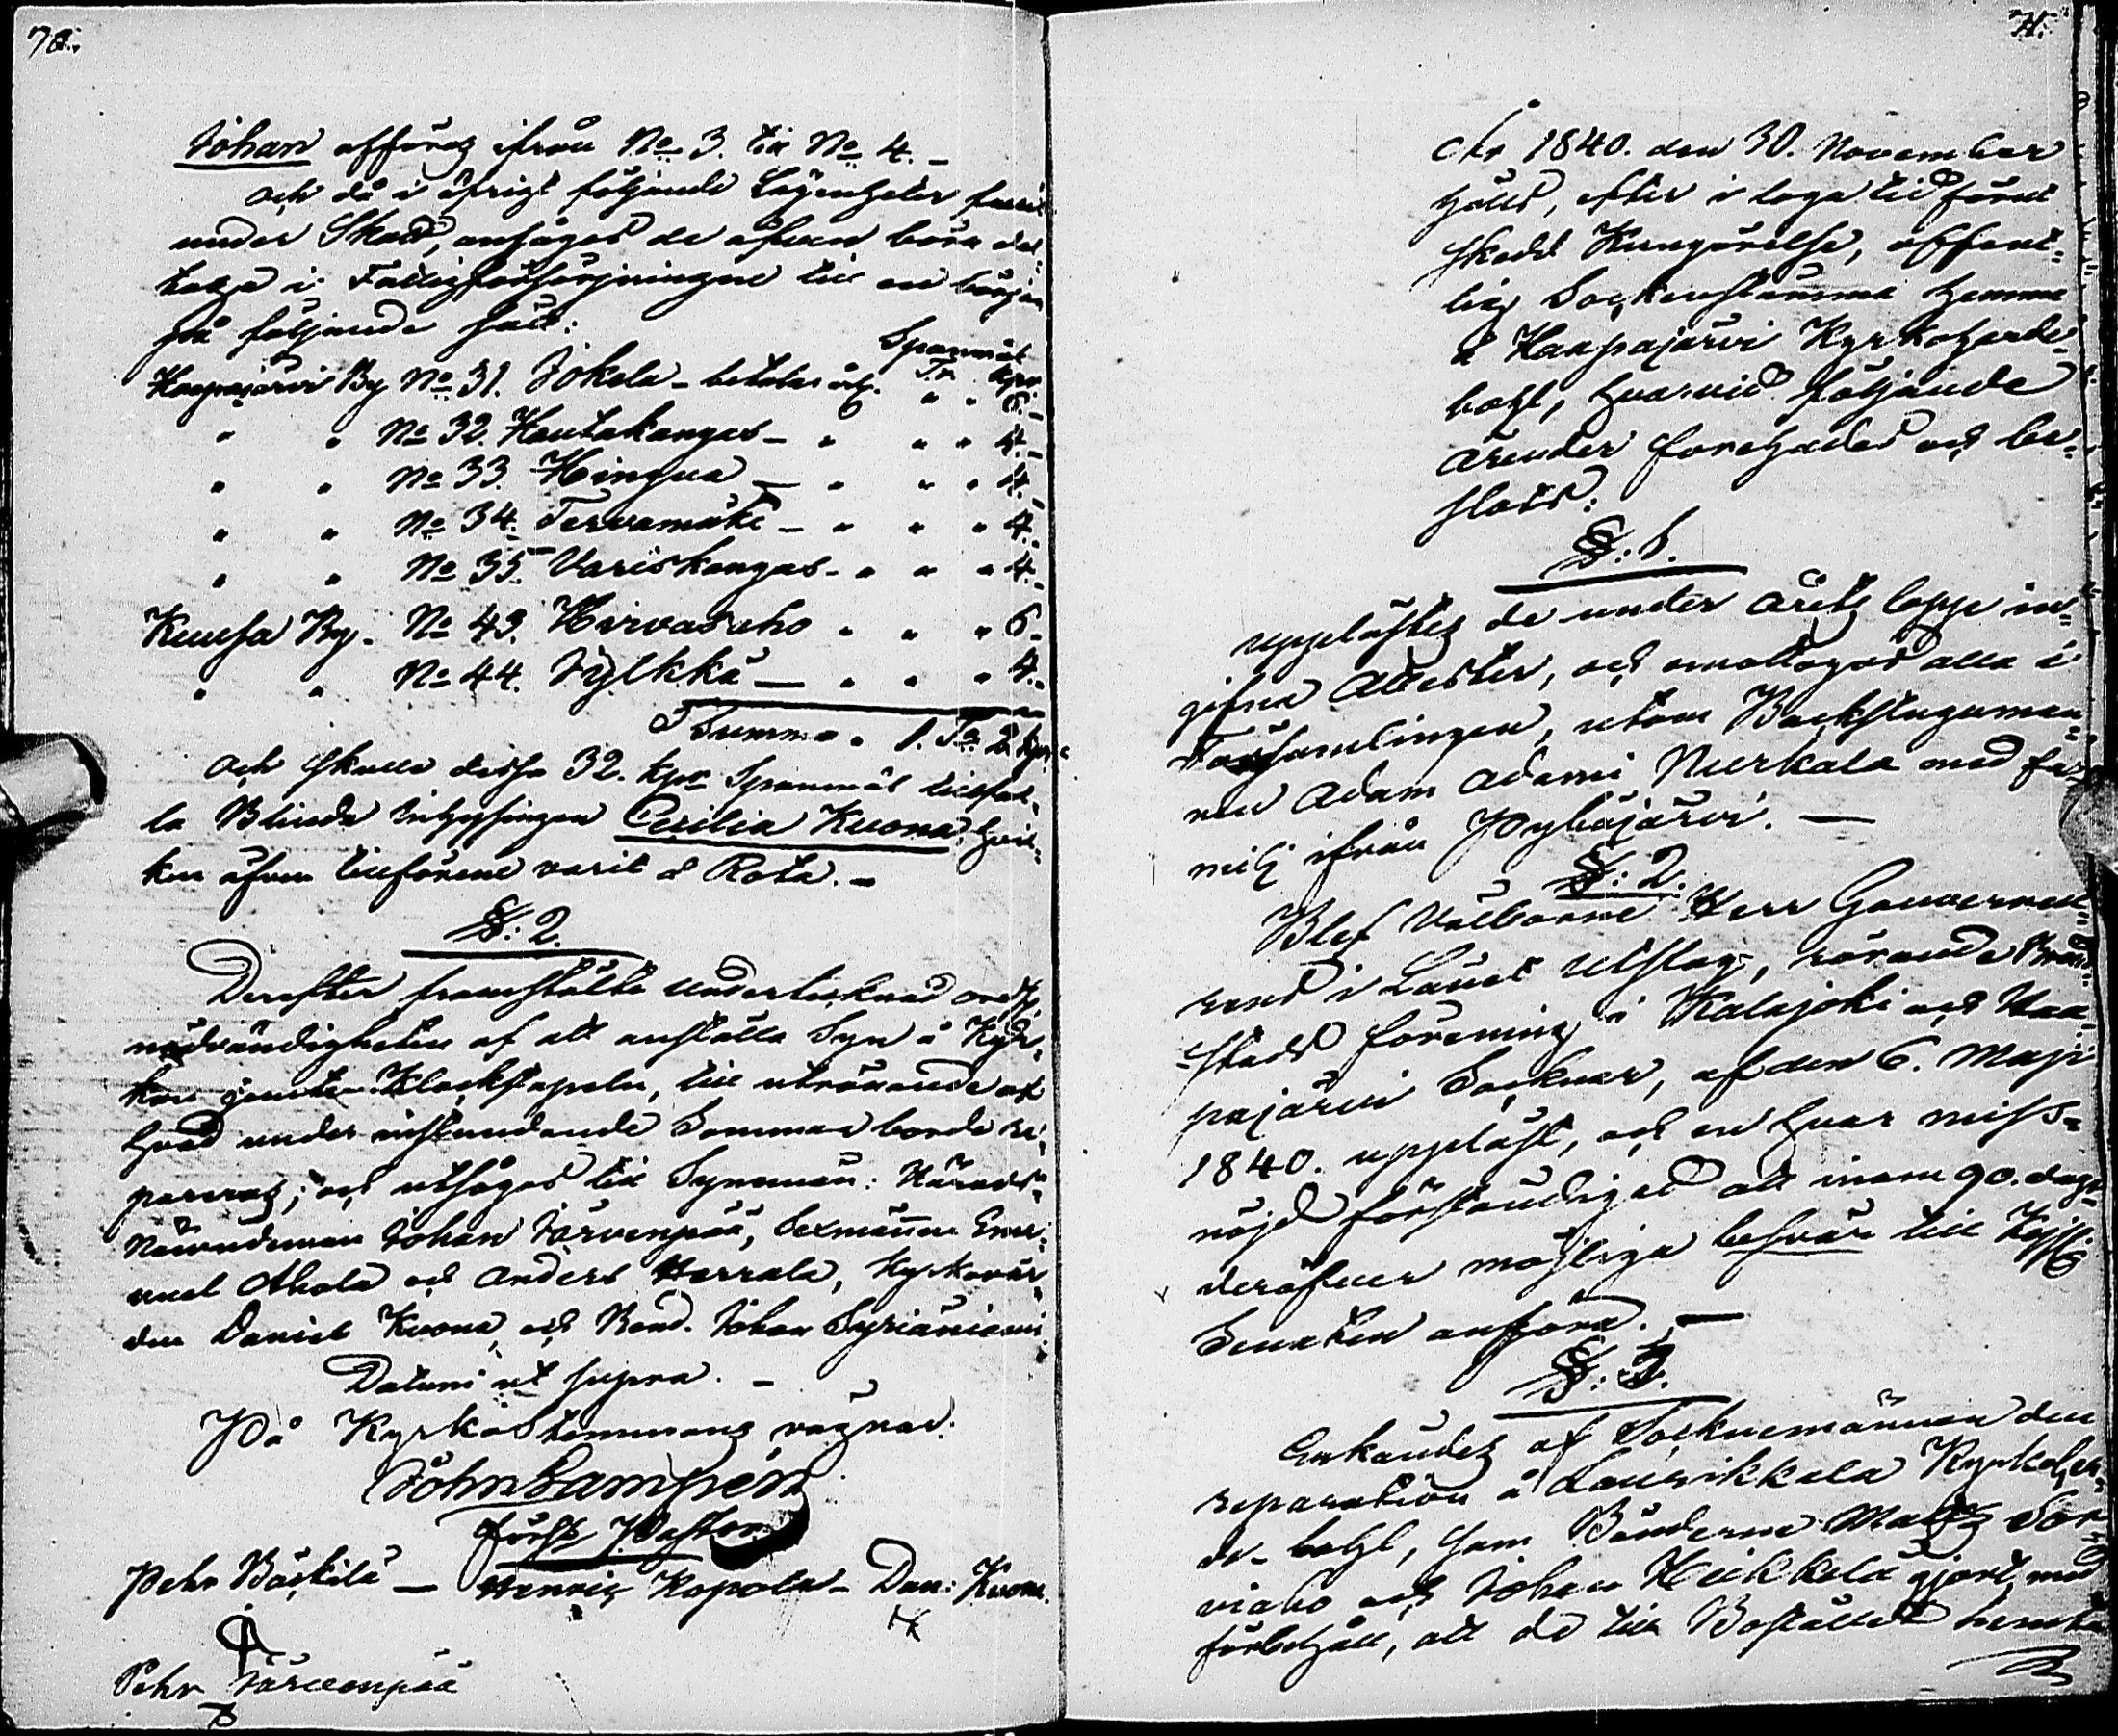 70.
Johan afföres ifrån No 3. til No 4. –
och då i öfrigt följande Lägenheter
under Skatt, ansågos de äfven böra del-
taga i Fattigförsörjningen till en början
på följande sätt:
Spanmål
Haapajärvi By No 31. Jokela – betalar årl. Tr. kpr. 6. –
" " No 32. Hautakangas – " " " 4. –
" " No 33. Hingua – " " " 4. –
" " No 34. Tervamäki – " " " 4. –
" " No 35. Variskangas – " " " 4. –
Kuusa By. No 43. Hirvasaho " " " 6. –
" " No 44. Jylkkä – " " " 4. –
Summa. 1. Ta 2 kpr.
och skulle dessa 32. kpr Spanmål tillfal-
la Blinda Inhysingen Cecilia Kuona, hvil-
ken äfven tillförene varit å Rota. –
§: 2.
Derefter framstälte undertecknad
nödvändigheten af att anställa Syn å Kyr-
kan jemte Klockstapeln, till utrönande af
hvad under instundande Sommar borde re-
pareras; och utsågos til Synemän: Härads-
Nämndeman Johan Järvenpää, Sexmännen Ema-
nuel Ahola och Anders Harrala, Kyrkovär-
den Daniel Kuona, och Bond. Johan Syriäniemi.
Datum ut supra. –
På Kyrkostämmans vägnar.
Joh. Lampén
Förste Pastor
Pehr Bäckilä – Henric Kopola – Dan: Kuona.
Pehr Järvenpää
71.
År 1840. den 30. November
hölls, efter i laga tid förut
skedd Kungörelse, offent-
lig Sockenstämma hemma
å Haapajärvi Kyrkoherde-
bohl, hvarvid följande
ärender forehades och be-
slöts:
§: 1.
upplästes de under årets lopp in-
gifna Attester, och emottogos alla i
Församlingen, utom Backstuguman-
nen Adam Adami Nurkala med fa-
milj ifrån Pyhäjärvi. –
§: 2.
Blef Välborne Herr Gouverneu-
rens i Länet Utslag, rörande Brand-
stods förening i Kalajoki och Haa-
pajärvi Socknar, af den 6. Maji
1840. uppläst, och en hvar miss-
nöjd förständigad att inom 90. dagar
deröfver möjliga besvär till Kejsl.
Senaten anföra. –
§: 3.
Erkändes af Sockenemännen den
reparation å Laurikkala Kyrkoher-
de-bohl, som Bönderne Matts Sor-
viaho och Johan Heikkilä gjort, med
förbehåll, att de till Bostället